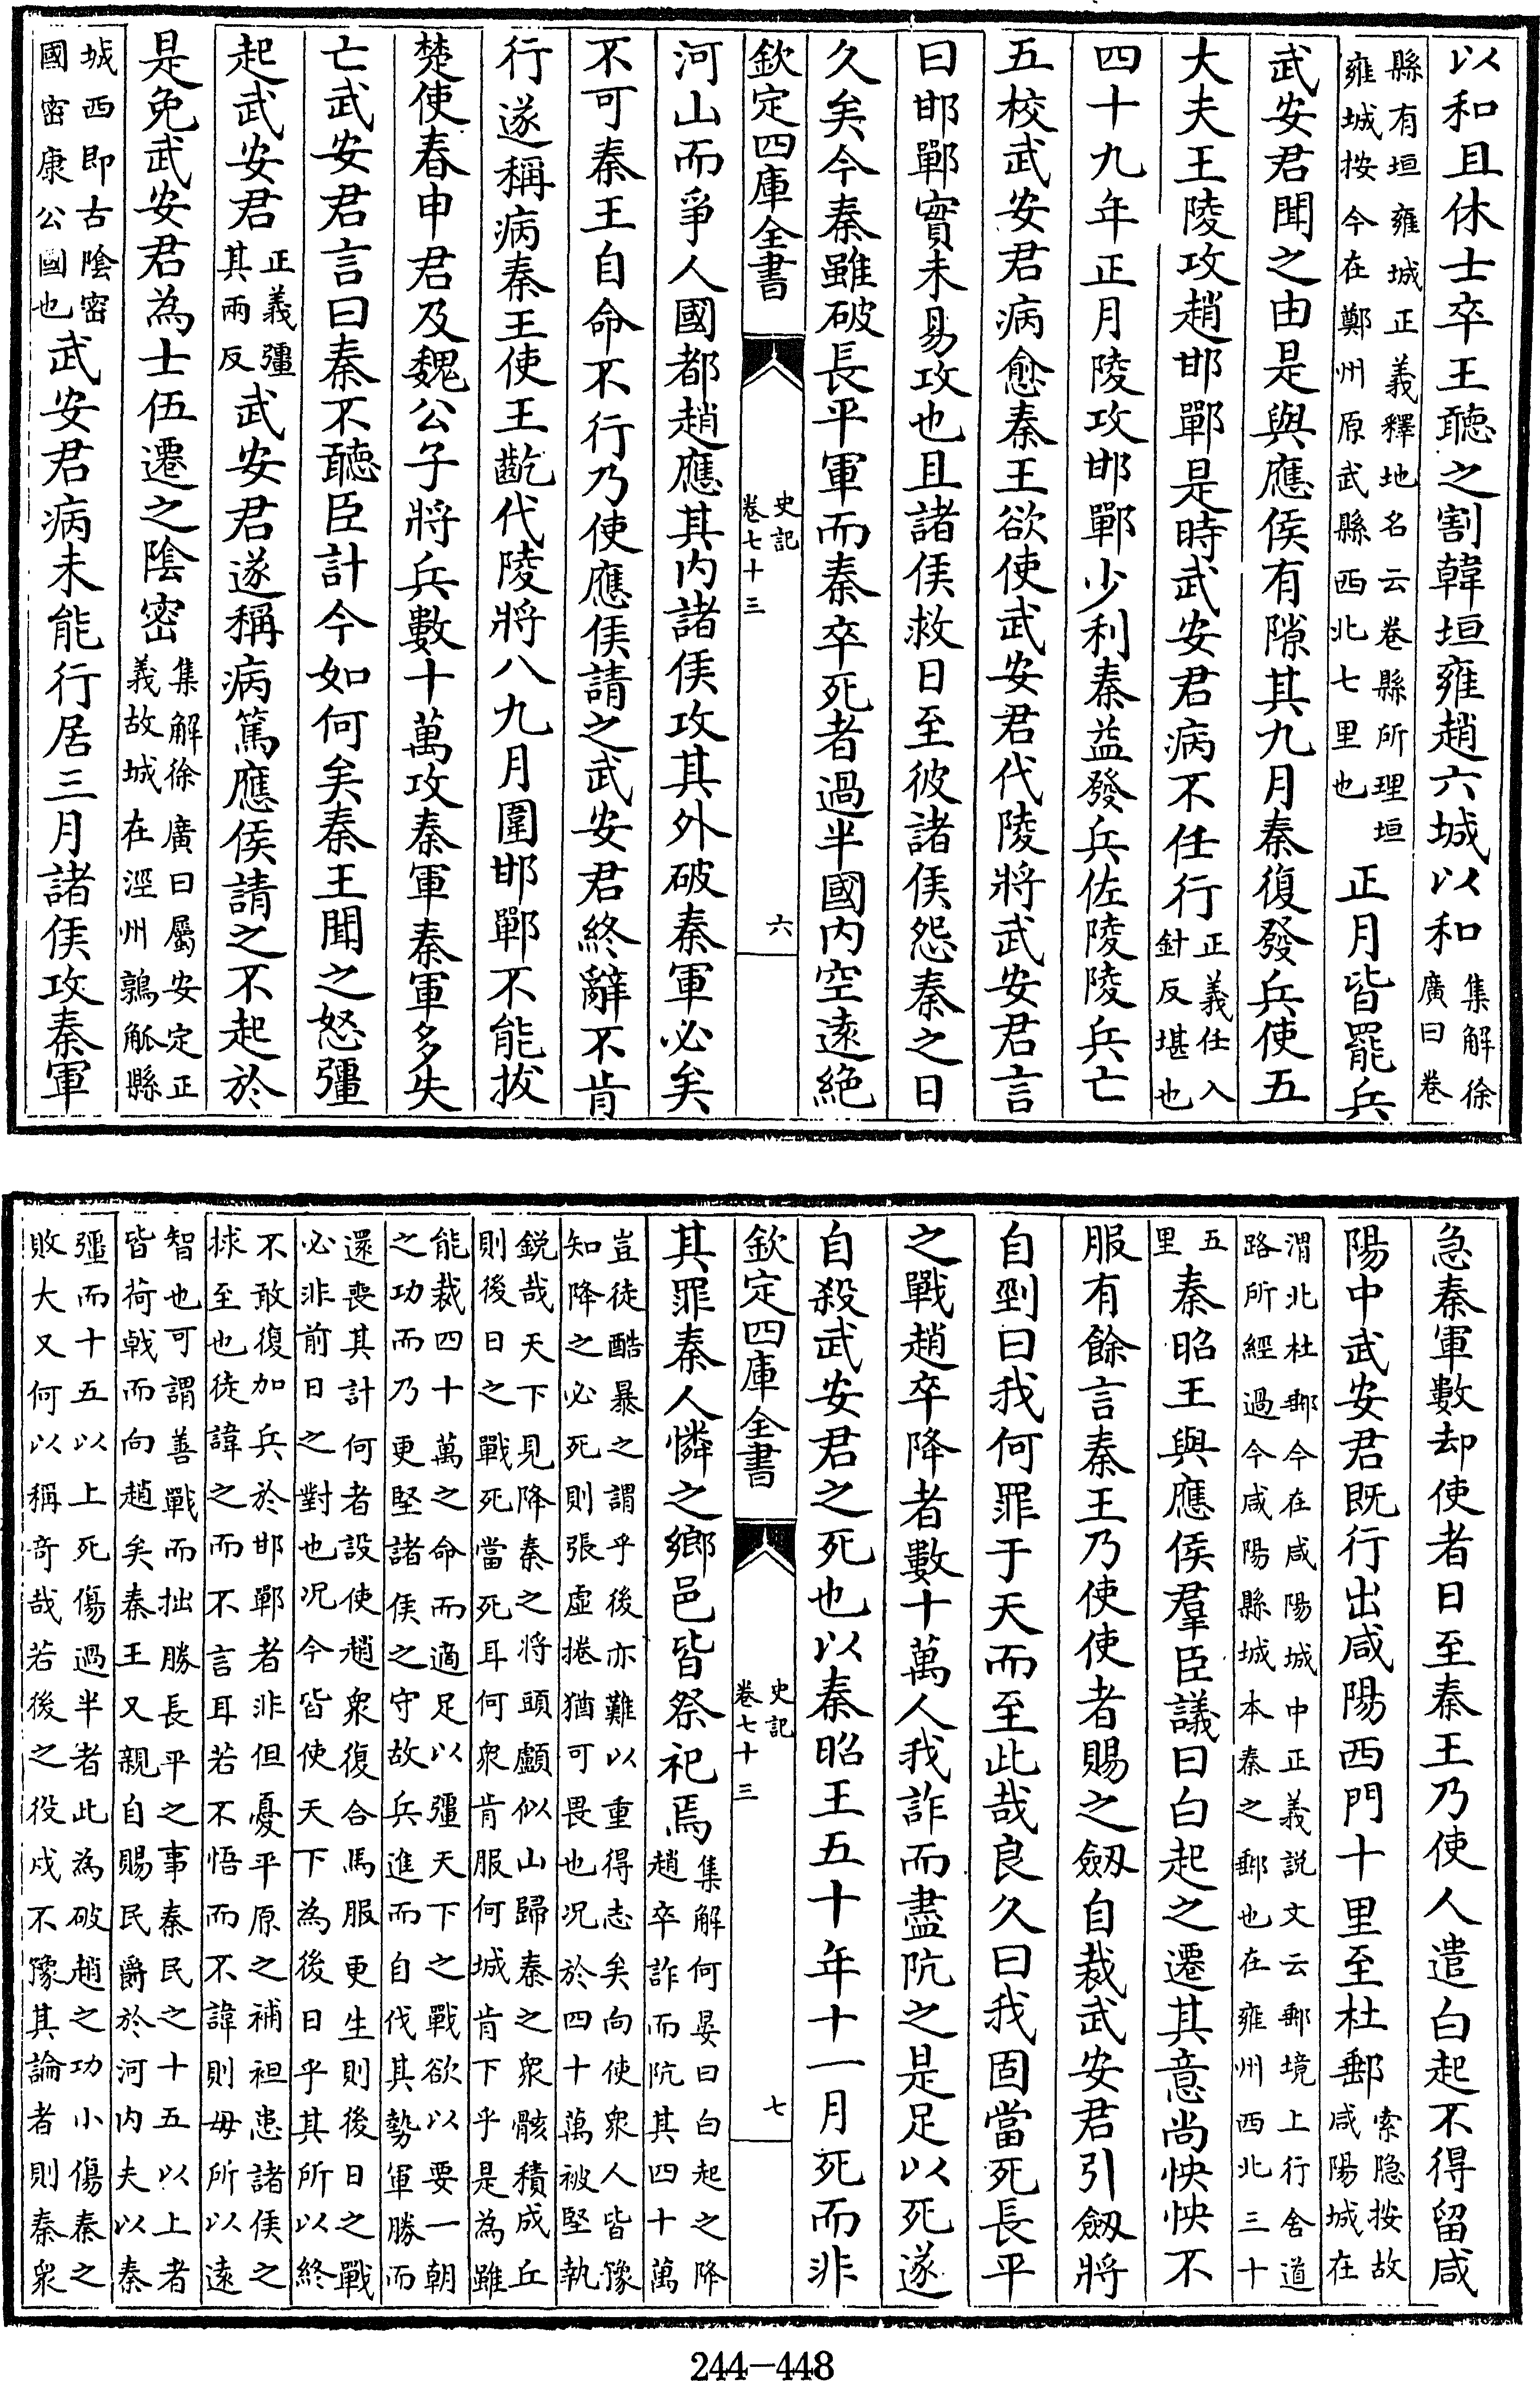 以和且休士卒王聽之割韓垣雍趙六城以和集解徐廣曰卷
縣有垣雍城正義釋地名云卷縣所理垣雍城按今在鄭州原武縣西北七里也正月皆罷兵
武安君聞之由是與應侯有隙其九月秦復發兵使五
大夫王陵攻趙邯鄲是時武安君病不任行正義任入針反堪也
四十九年正月陵攻邯鄲少利秦益發兵佐陵陵兵亡
五校武安君病愈秦王欲使武安君代陵將武安君言
曰邯鄲實未易攻也且諸侯救日至彼諸侯怨秦之日
久矣今秦雖破長平軍而秦卒死者過半國內空遠絶
欽定四庫全書
史記
卷七十三
六
河山而爭人國都趙應其内諸侯攻其外破秦軍必矣
不可秦王自命不行乃使應侯請之武安君終辭不肯
行遂稱病秦王使王齕代陵將八九月圍邯鄲不能拔
楚使春申君及魏公子將兵數十萬攻秦軍秦軍多失
亡武安君言曰秦不聽臣計今如何矣秦王聞之怒彊
起武安君正義彊其兩反武安君遂稱病篤應侯請之不起於
是免武安君為士伍遷之陰密集解徐廣曰屬安定正義故城在涇州鶉觚縣
城西即古陰密國密康公國也武安君病未能行居三月諸侯攻秦軍
急秦軍數却使者日至秦王乃使人遣白起不得留咸
陽中武安君既行出咸陽西門十里至杜郵索隠按故咸陽城在
渭北杜郵今在咸陽城中正義説文云郵境上行舍道路所經過今咸陽縣城本秦之郵也在雍州西北三十
五里秦昭王與應侯羣臣議曰白起之遷其意尚怏怏不
服有餘言秦王乃使使者賜之劔自裁武安君引劔將
自剄曰我何罪于天而至此哉良久曰我固當死長平
之戰趙卒降者數十萬人我詐而盡阬之是足以死遂
自殺武安君之死也以秦昭王五十年十一月死而非
欽定四庫全書
史記
卷七十三
七
其罪秦人憐之鄉邑皆祭祀焉集解何晏曰白起之降趙卒詐而阬其四十萬
豈徒酷暴之謂乎後亦難以重得志矣向使衆人皆豫知降之必死則張虛捲猶可畏也况於四十萬被堅執
銳哉天下見降秦之將頭顱似山歸秦之衆骸積成丘則後日之戰死當死耳何衆肯服何城肯下乎是為雖
能裁四十萬之命而適足以彊天下之戰欲以要一朝之功而乃更堅諸侯之守故兵進而自伐其勢軍勝而
還喪其計何者設使趙衆復合馬服更生則後日之戰必非前日之對也况今皆使天下為後日乎其所以終
不敢復加兵於邯鄲者非但憂平原之補袒患諸侯之捄至也徒諱之而不言耳若不悟而不諱則毋所以遠
智也可謂善戰而拙勝長平之事秦民之十五以上者皆荷戟而向趙矣秦王又親自賜民爵於河内夫以秦
彊而十五以上死傷過半者此為破趙之功小傷秦之敗大又何以稱奇哉若後之役戍不豫其論者則秦衆
244-448